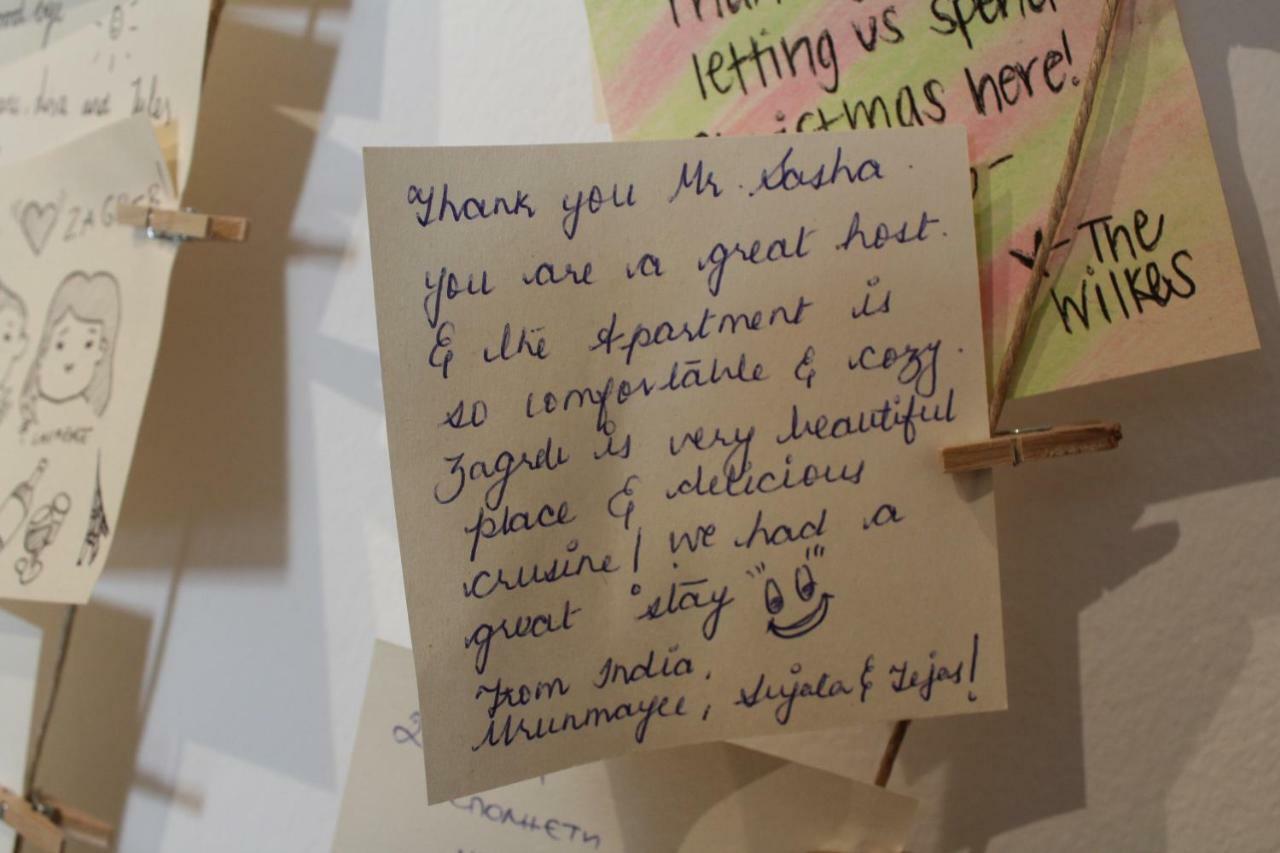 Thank you Mr. Sasha.
you are a great host.
& the Apartment is
so comfortable & cozy.
Zagreb is very beautiful
place & delicious
crusine! we had a
great stay
From India,
Mrunmayee, Sujala & Tejas!
letting us spend
christmas here!
- The
Wilkes
and Jules
ZAGREB